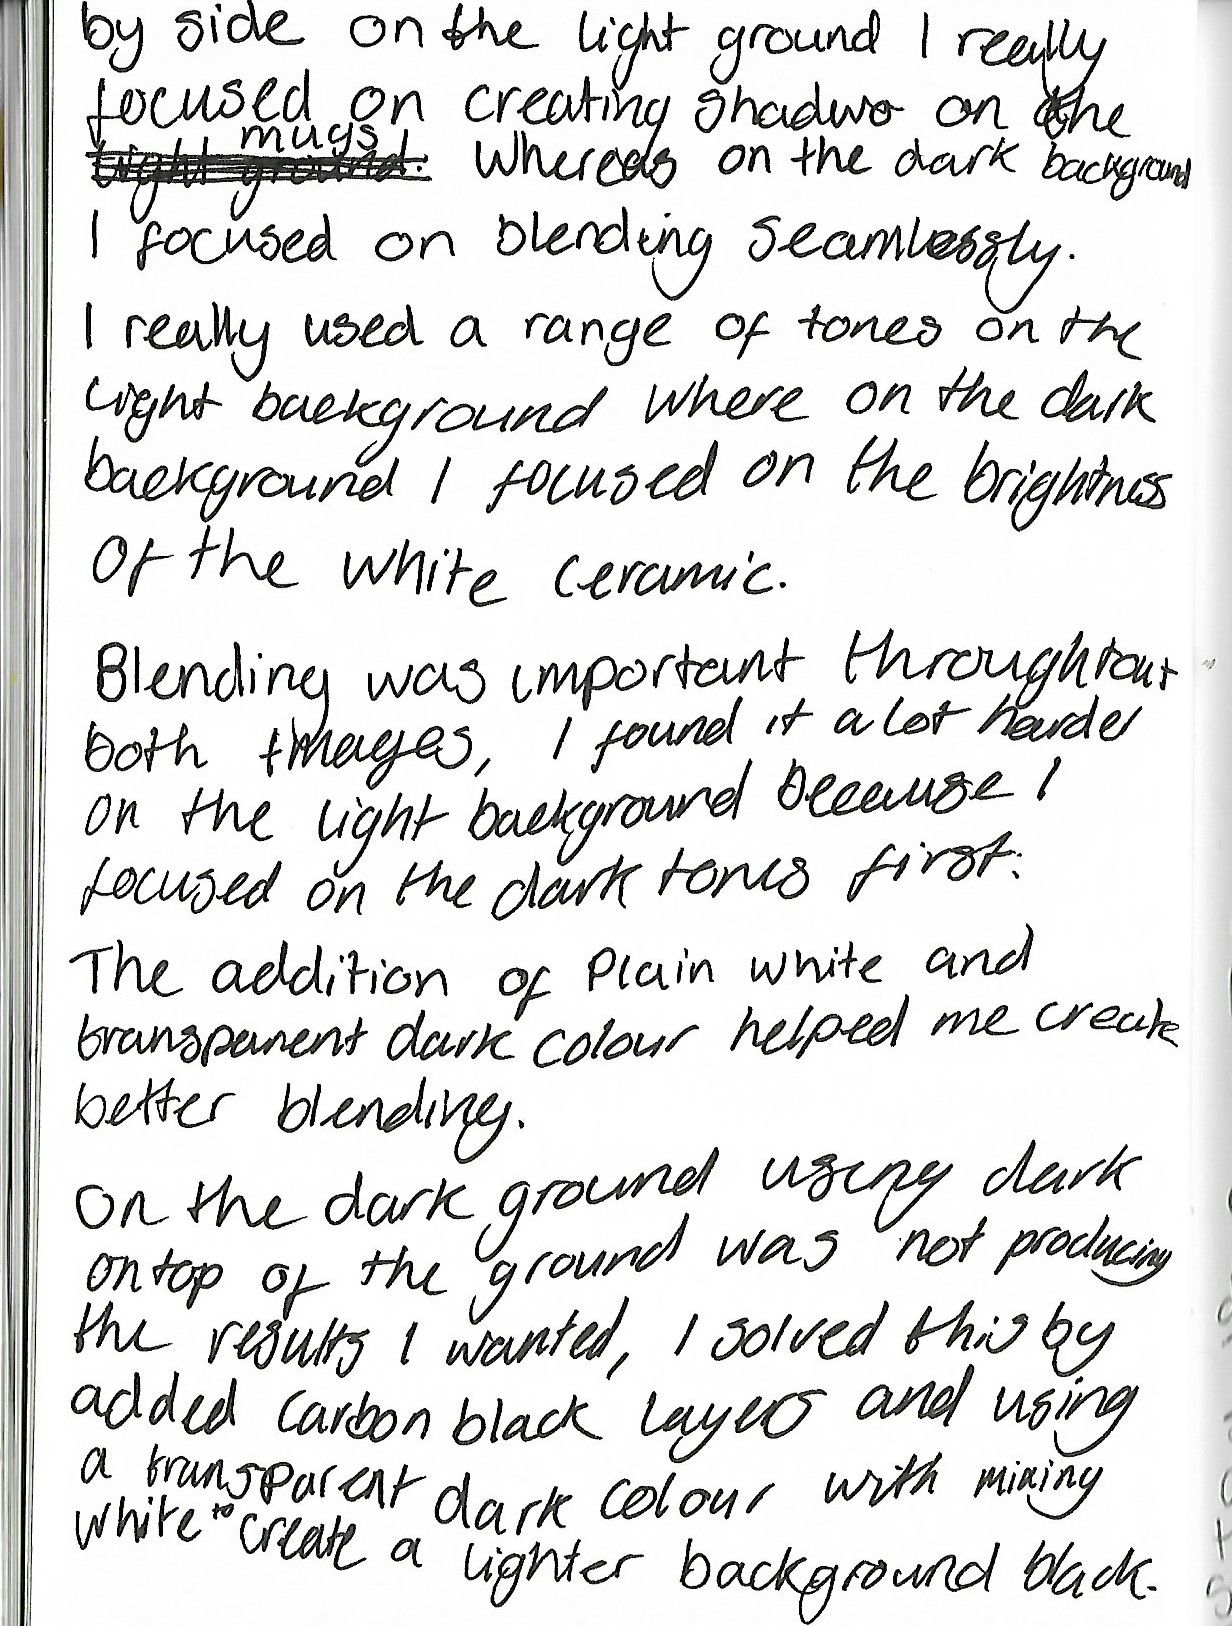 by side on the light ground I really
focused on creating shadwo on the
mugs
light ground. Whereas on the dark background
I focused on blending seamlessly.
I really used a range of tones on the
light background where on the dark
background I focused on the brightness
Of the white ceramic.
Blending was important throughtout
both images, I found it a lot harder
on the light background because I
focused on the dark tones first.
The addition of Plain white and
transparent dark colour helped me create
better blending.
On the dark ground using dark
ontop of the ground was not producing
the results I wanted, I solved this by
added Carbon black layers and using
a transparent dark colour with mixing
white to create a lighter background black.